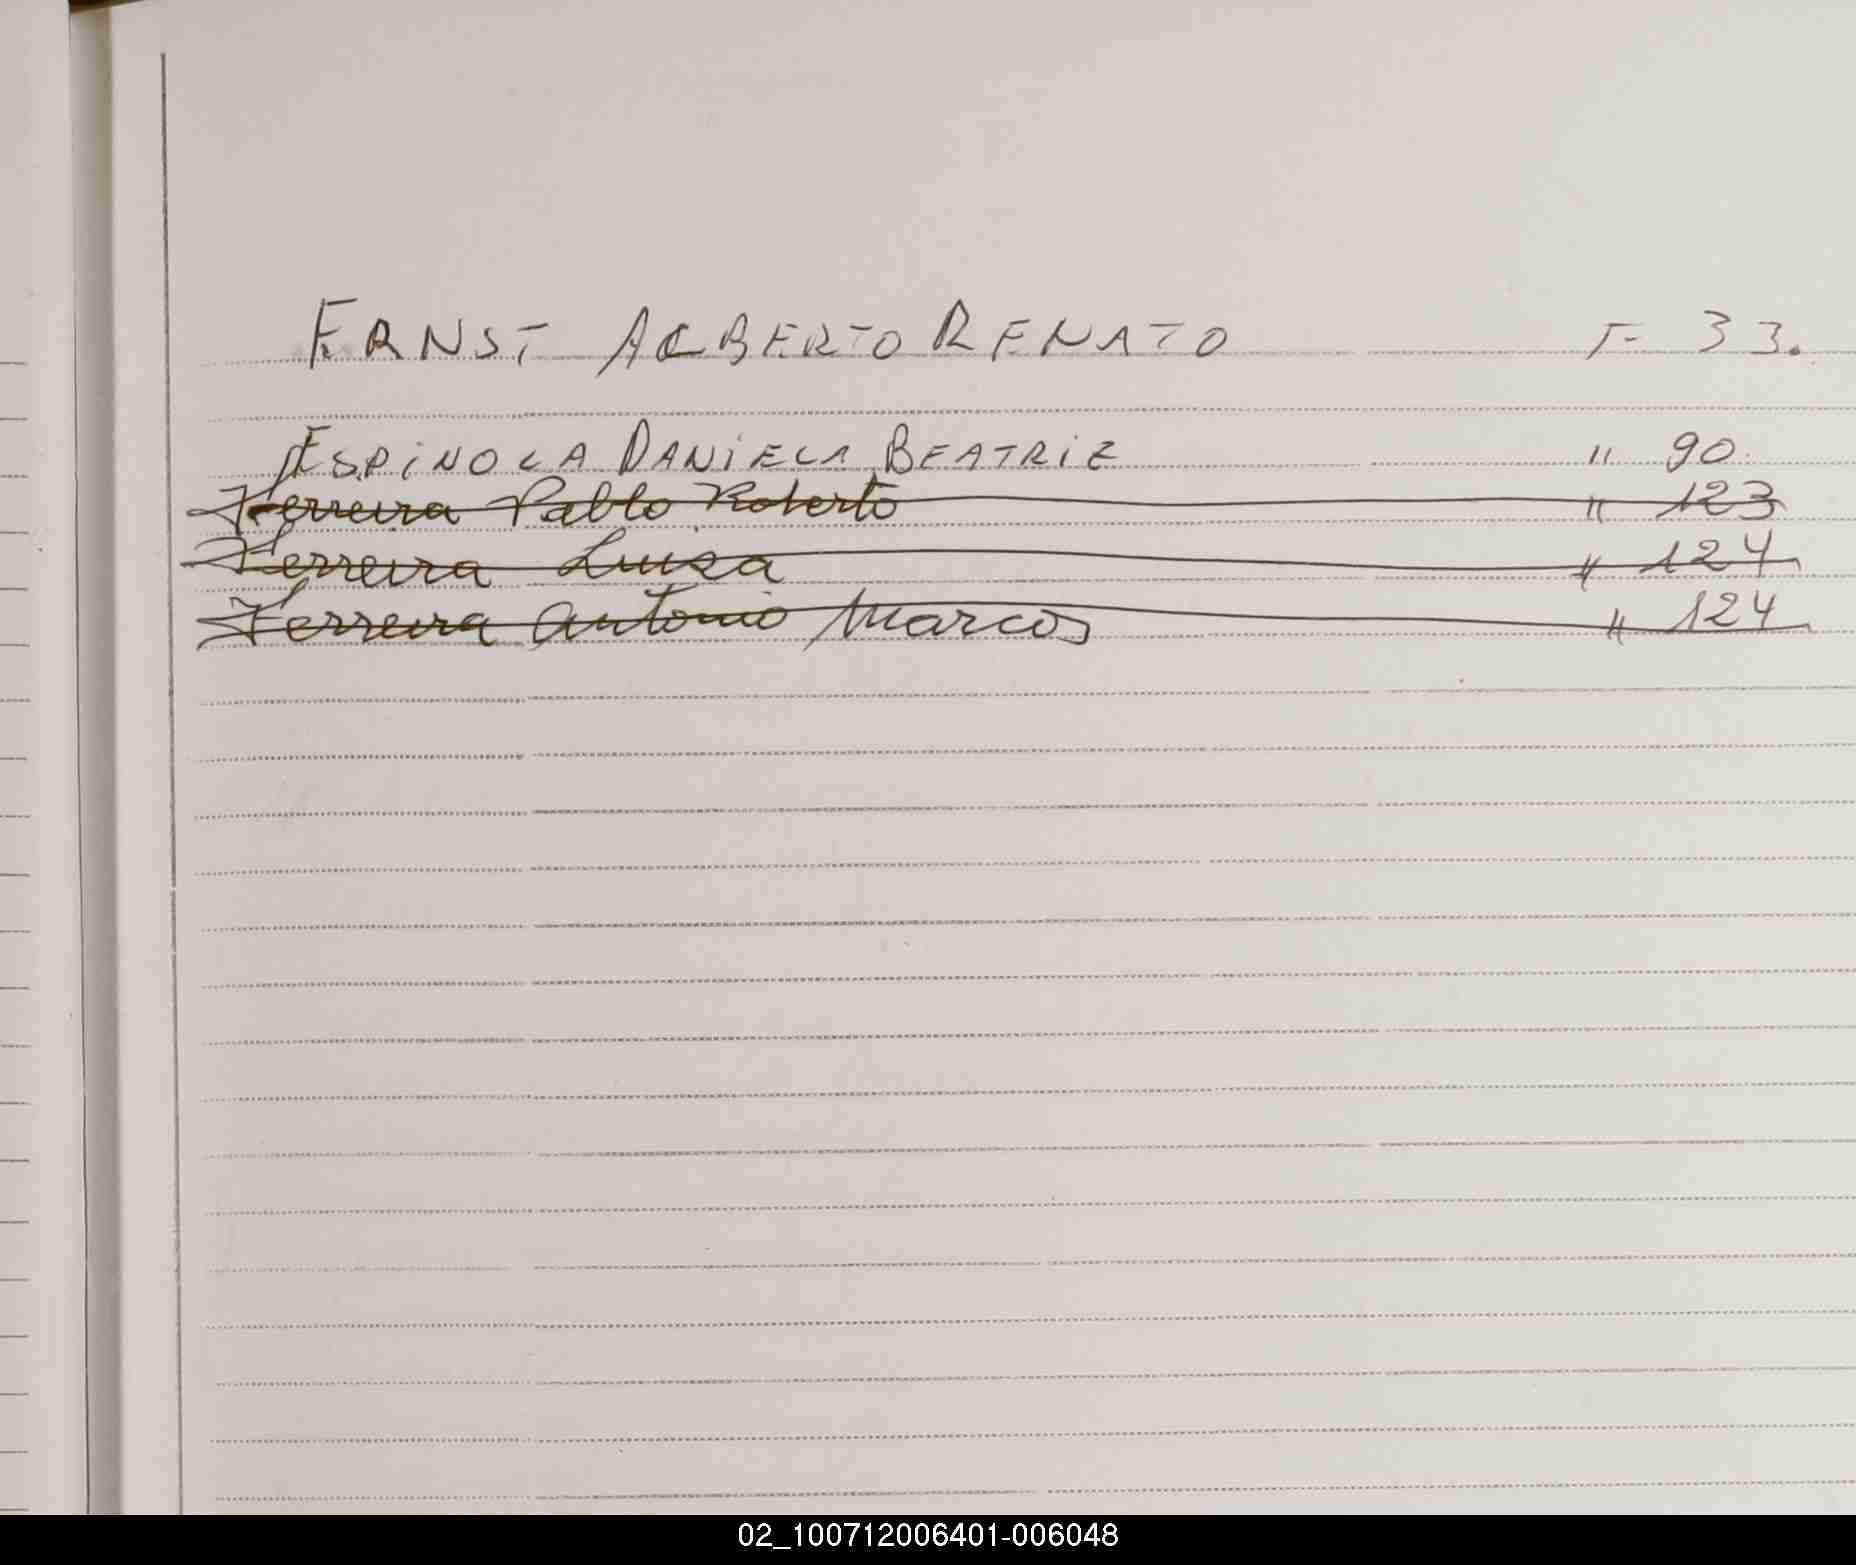 ERNST ALBERTO RENATO F- 33.
ESPiNOLA DANiELA BEATRiZ " 90.
Ferreira Pablo Roberto " 123
Ferreira Luisa " 124
Ferreira Antonio Marcos " 124
02_100712006401-006048